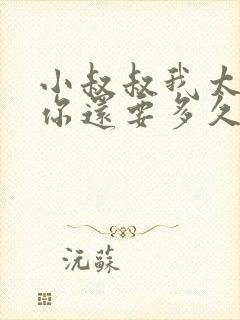 小叔叔我大
你還要多久
沅蘇